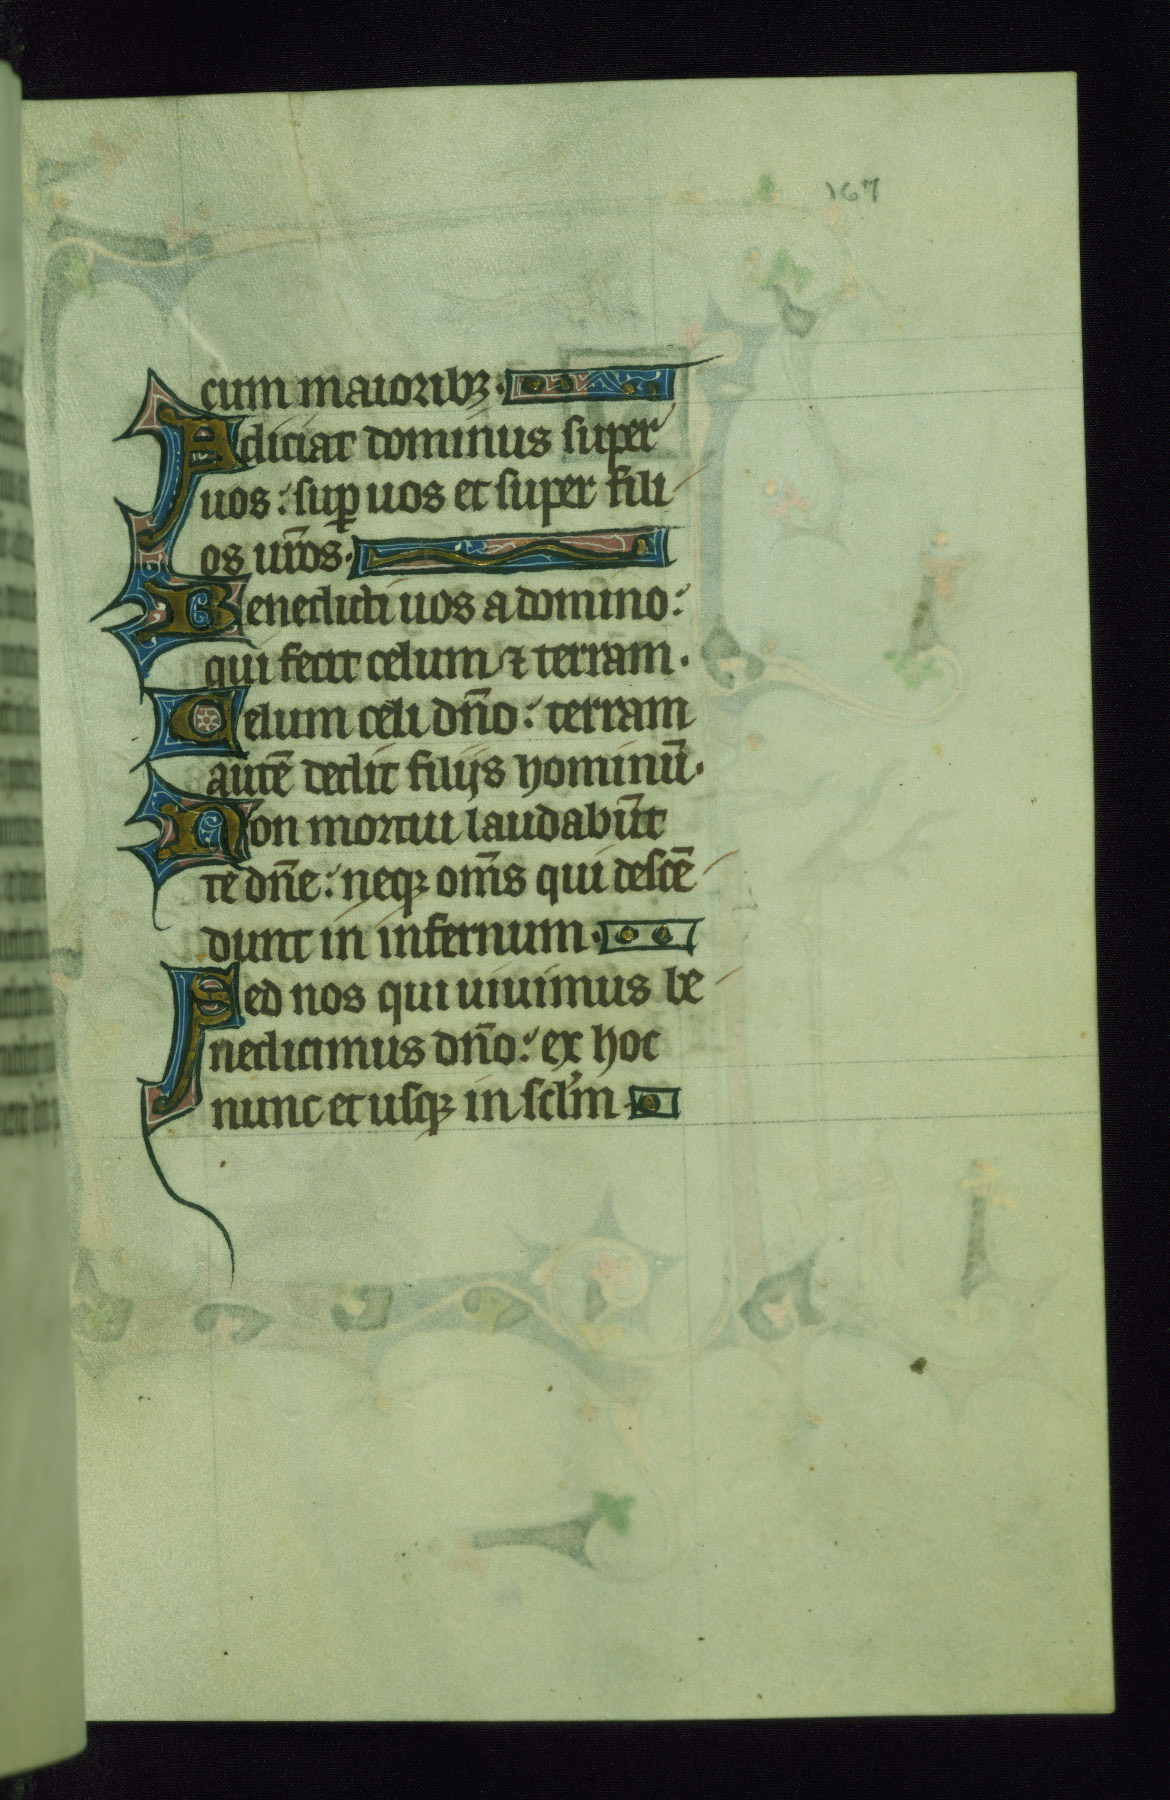 167
cum maioribꝫ.
Adiciat dominus super
uos: suꝑ uos et super fili
os ur̄os.
Benedicti uos a domino:
qui fecit celum ⁊ terram.
Celum celi dn̄o: terram
autē dedit filijs hominū.
Non mortui laudabūt
te dn̄e: neqꝫ om̄s qui descē
dunt in infernum.
Sed nos qui uiuimus be
nedicimus dn̄o: ex hoc
nunc et usqꝫ in sclm̄